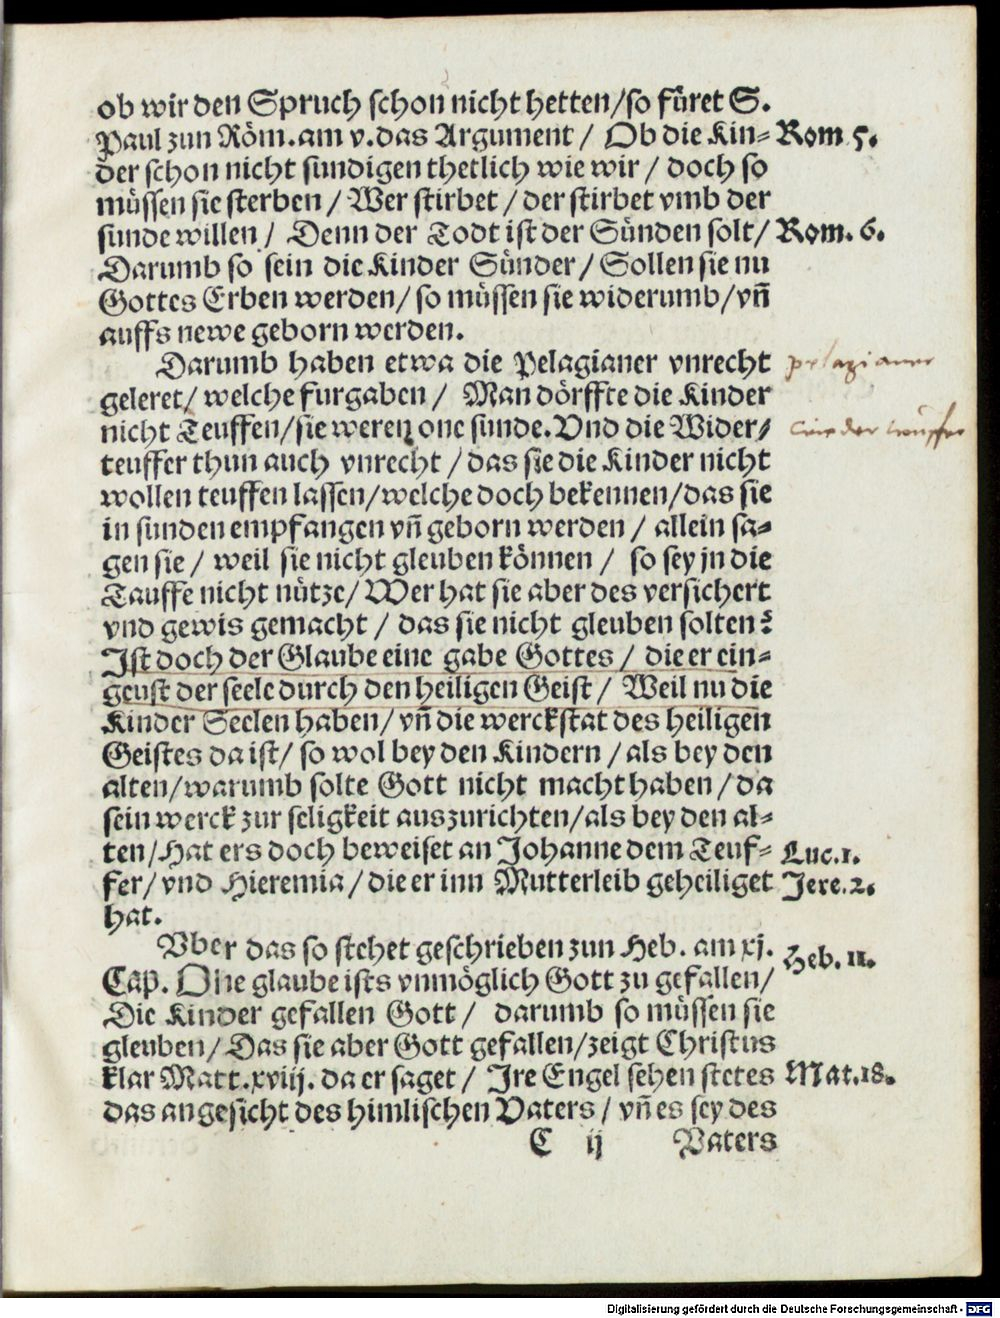 ob wir den Spruch schon nicht hetten/so füret S.
Paul zun Röm.am v.das Argument / Ob die Kin-
Rom 5.
der schon nicht sundigen thetlich wie wir / doch so
müssen sie sterben / Wer stirbet / der stirbet vmb der
sunde willen / Denn der Todt ist der Sünden solt/
Rom. 6.
Darumb so sein die Kinder Sünder / Sollen sie nu
Gottes Erben werden/ so müssen sie widerumb/vñ
auffs newe geborn werden.
Darumb haben etwa die Pelagianer vnrecht
pelagianer
geleret/ welche furgaben / Man dörffte die Kinder
nicht Teuffen/sie weren one sunde.Vnd die Wider-
wiedertäuffer
teuffer thun auch vnrecht / das sie die Kinder nicht
wollen teuffen lassen/welche doch bekennen/das sie
in sunden empfangen vñ geborn werden / allein sa-
gen sie / weil sie nicht gleuben können / so sey jn die
Tauffe nicht nütze/ Wer hat sie aber des versichert
vnd gewis gemacht / das sie nicht gleuben solten?
Ist doch der Glaube eine gabe Gottes / die er ein-
geust der seele durch den heiligen Geist / Weil nu die
Kinder Seelen haben/ vñ die werckstat des heiligen
Geistes da ist/ so wol bey den Kindern / als bey den
alten/warumb solte Gott nicht macht haben / da
sein werck zur seligkeit auszurichten/als bey den al-
ten/Hat ers doch beweiset an Johanne dem Teuf-
Luc.1.
fer/ vnd Hieremia / die er inn Mutterleib geheiliget
Jere.2.
hat.
Vber das so stehet geschrieben zun Heb. am xj.
Heb. 11.
Cap. One glaube ists vnmöglich Gott zu gefallen/
Die Kinder gefallen Gott / darumb so müssen sie
gleuben/ Das sie aber Gott gefallen/zeigt Christus
klar Matt.xviij. da er saget / Ire Engel sehen stetes
Mat.18.
das angesicht des himlischen Vaters / vñ es sey des
C ij Vaters
Digitalisierung gefördert durch die Deutsche Forschungsgemeinschaft - DFG